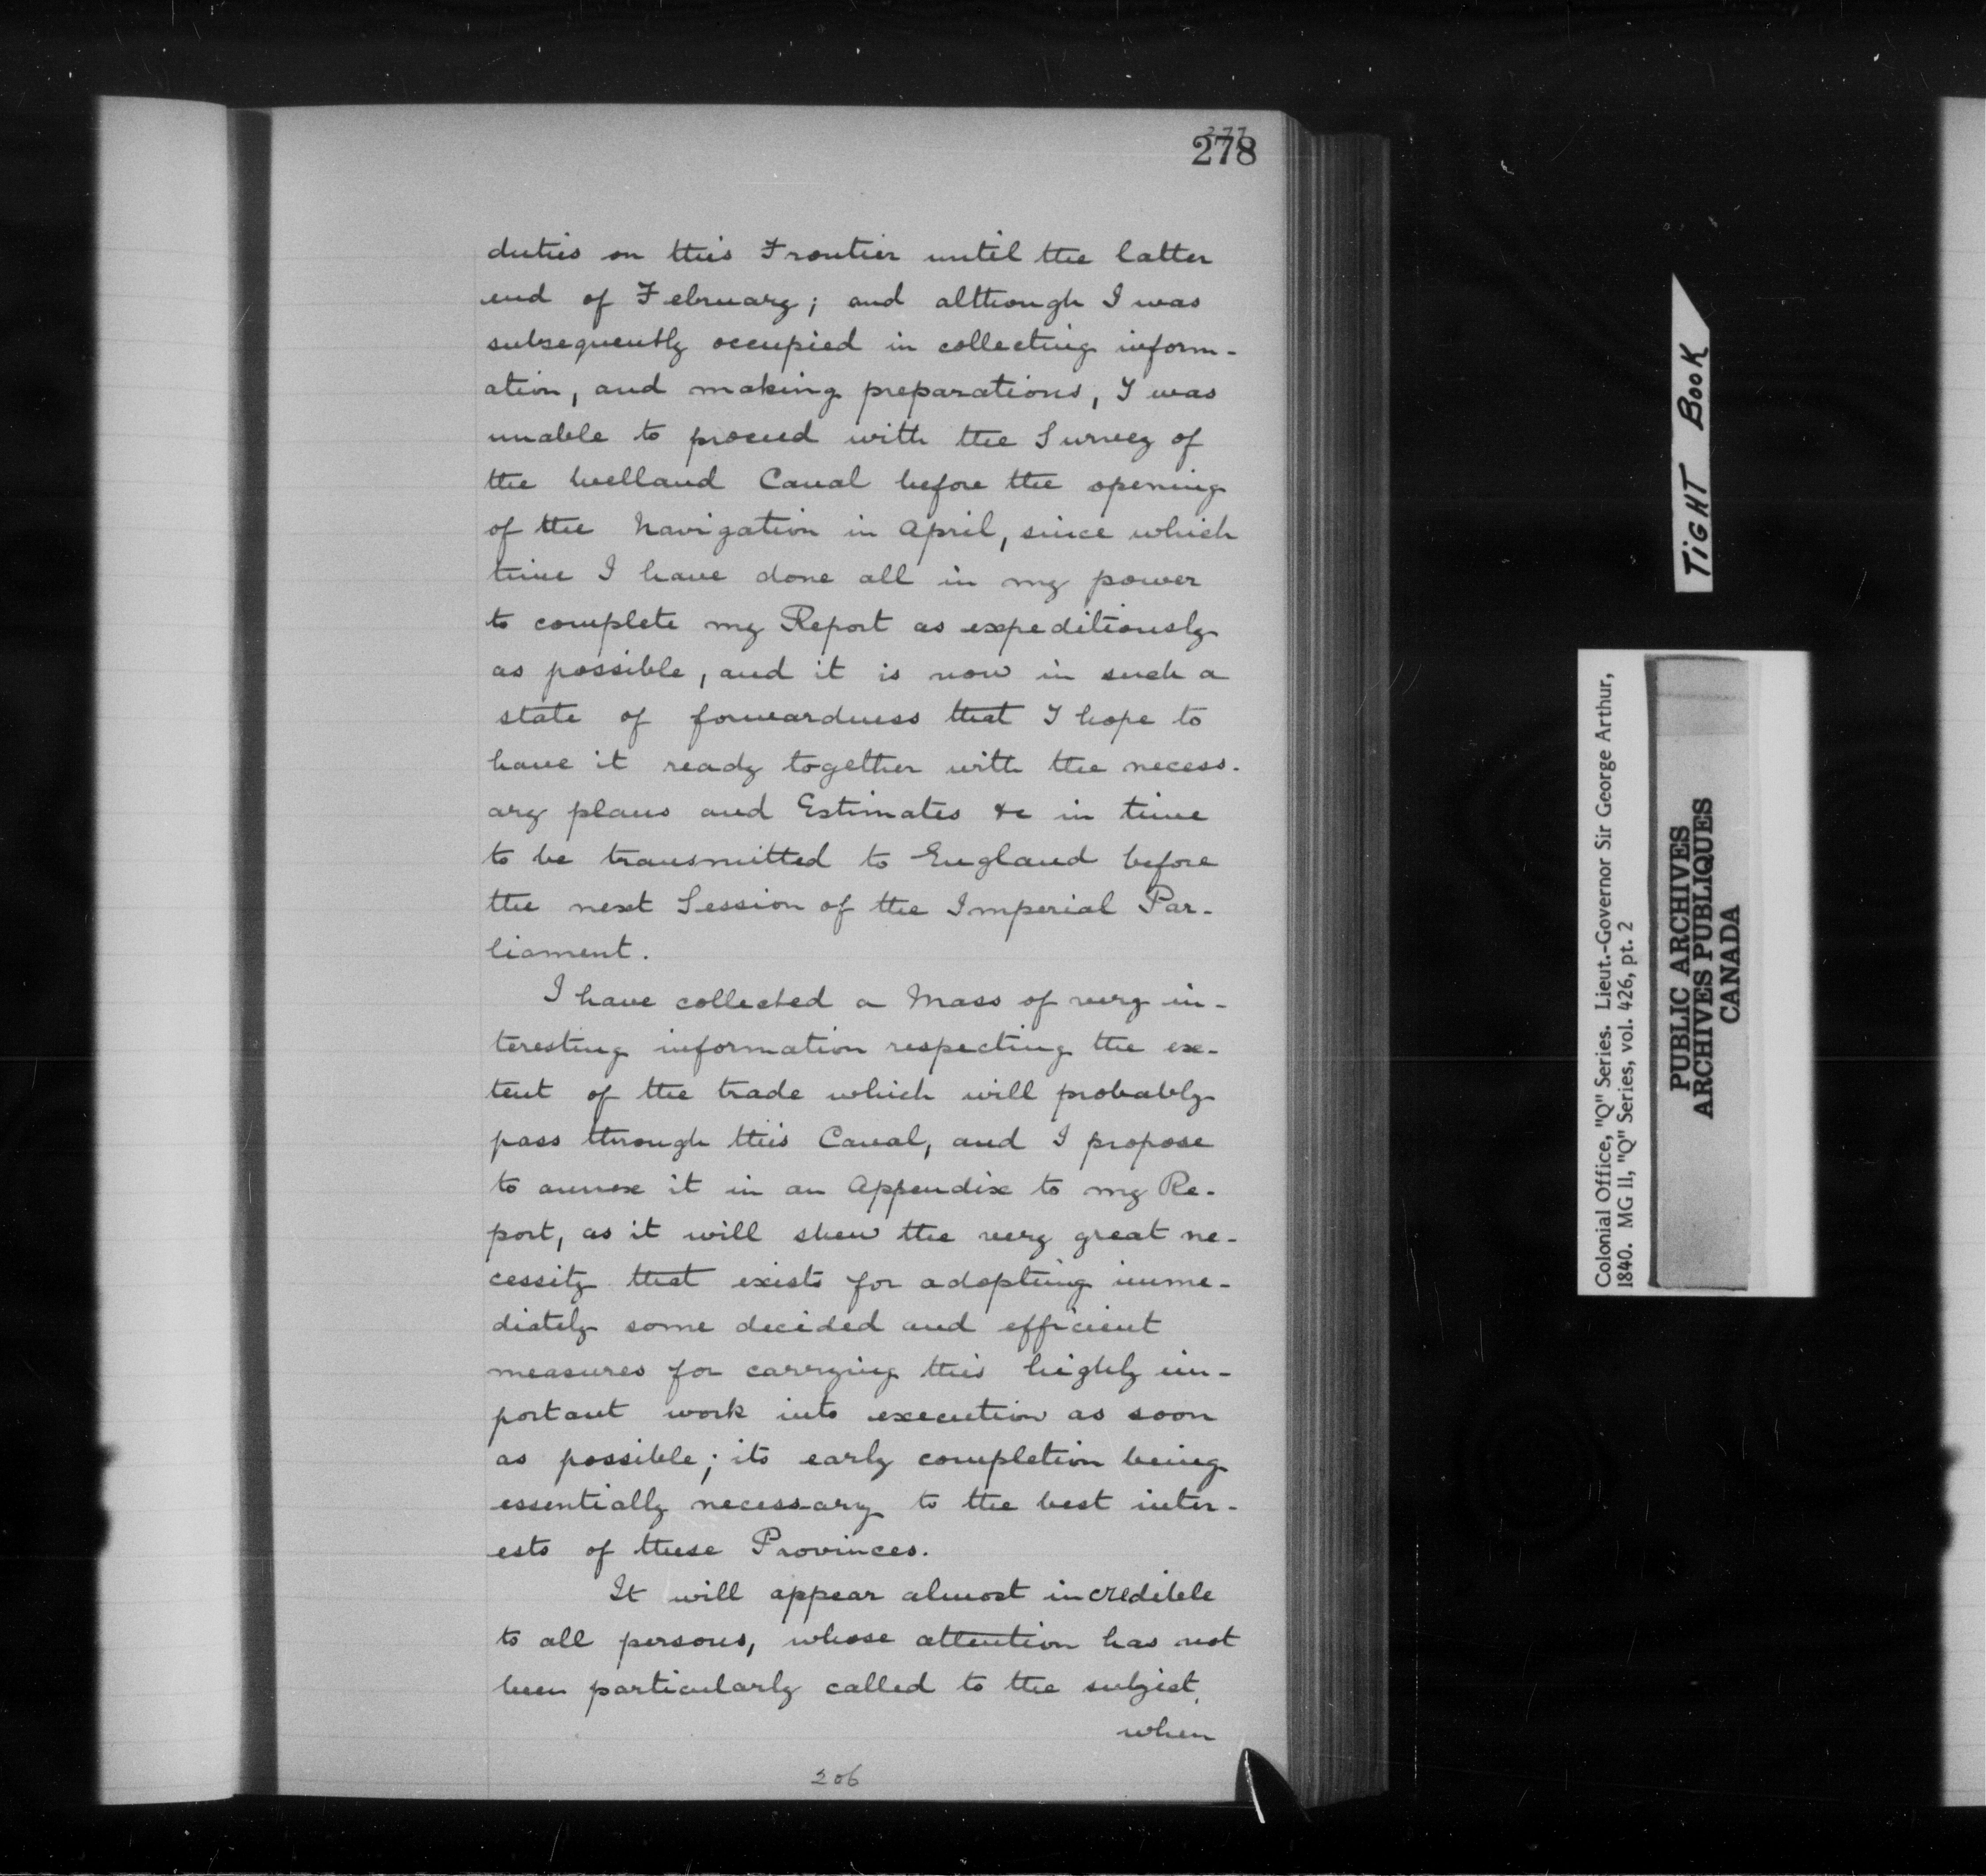 277
278
duties on this Frontier until the latter
end of February; and although I was
subsequently occupied in collecting inform-
ation, and making preparations, I was
unable to proceed with the Survey of
the Welland Canal before the opening
of the Navigation in April, since which
time I have done all in my power
to complete my Report as expeditiously
as possible, and it is now in such a
state of forwardness that I hope to
have it ready together with the necess-
ary plans and Estimates &c in time
to be transmitted to England before
the next Session of the Imperial Par-
liament.
I have collected a Mass of very in-
teresting information respecting the ex-
tent of the trade which will probably
pass through this Canal, and I propose
to annex it in an Appendix to my Re-
port, as it will shew the very great ne-
cessity that exists for adopting imme-
diately some decided and efficient
measures for carrying this highly im-
portant work into execution as soon
as possible; its early completion being
essentially necessary to the best inter-
ests of these Provinces.
It will appear almost incredible
to all persons, whose attention has not
been particularly called to the subject,
when
206
TiGHT BooK
Colonial Office, "Q" Series. Lieut.-Governor Sir George Arthur,
1840. MG 11, "Q" Series, vol. 426, pt. 2
PUBLIC ARCHIVES
ARCHIVES PUBLIQUES
CANADA